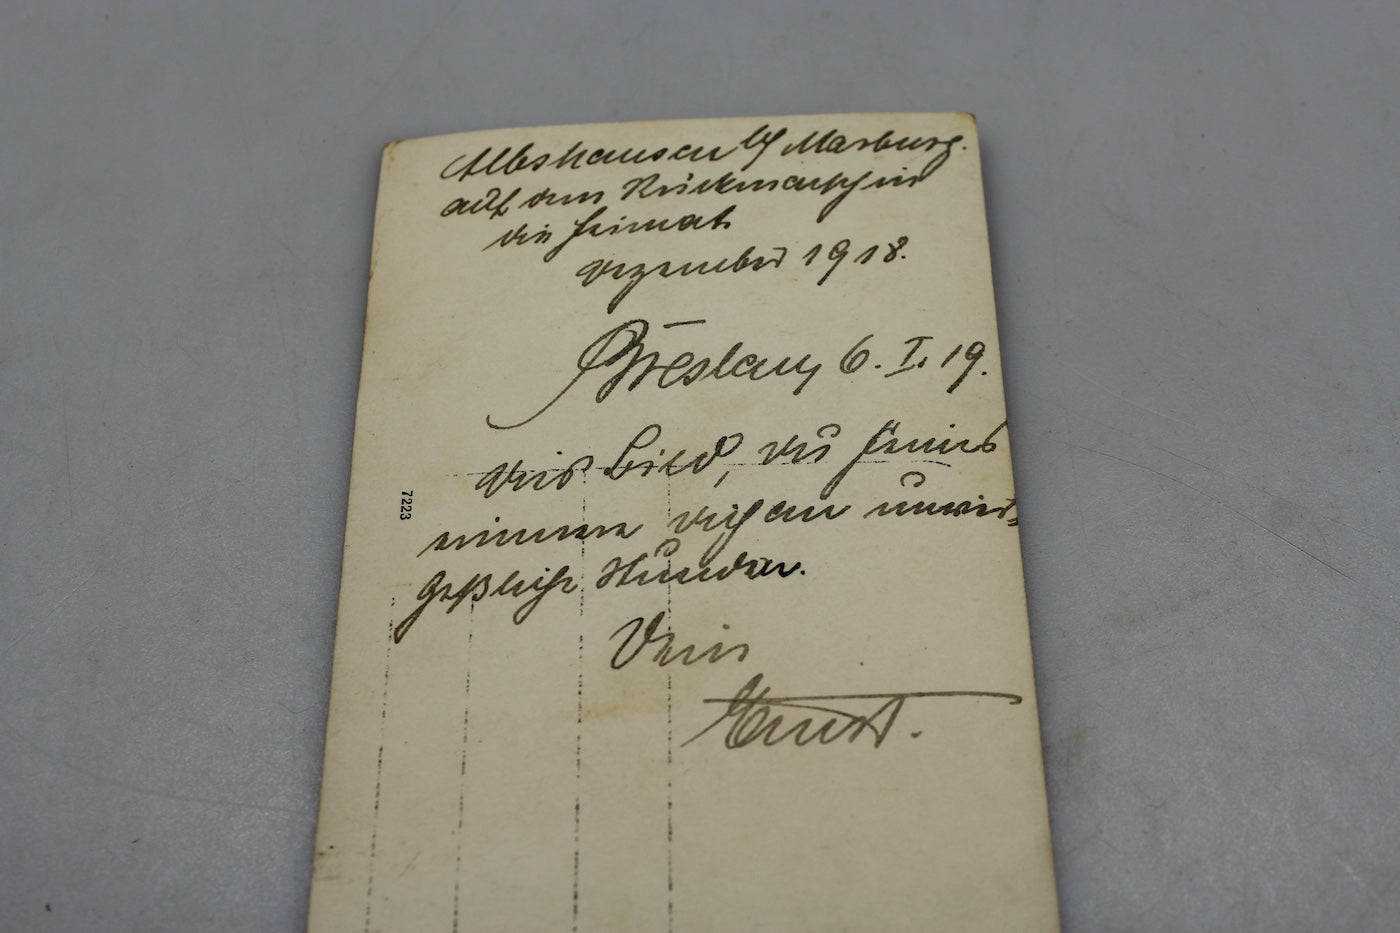 Albshausen b/ Marburg.
auf dem Rückmarsch in
die Heimat
Dezember 1918.
Breslau, 6. I. 19.
Dies Bild, Dich
erinnere Dich an unver-
geßliche Stunden.
Dein
Ernst.
7223